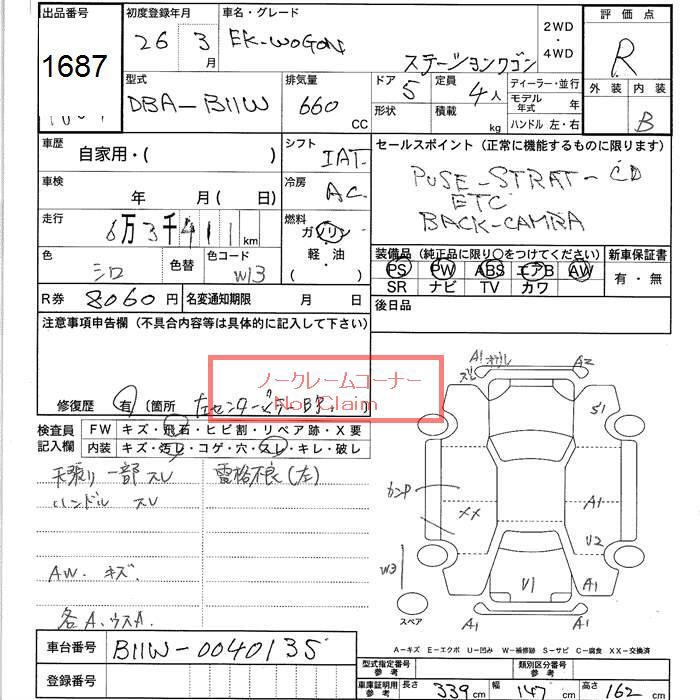 出品番号 初度登録年月 車名・グレード 2WD・4WD 評価点
1687 26 3月 EK-WOGON ステーションワゴン R
型式 排気量 ドア 定員 ディーラー・並行 外装 内装
DBA-B11W 660 CC 5 4人 モデル年式 年 B
形状 積載 kg ハンドル 左・右
車歴 シフト セールスポイント (正常に機能するものに限ります)
自家用・( ) IAT PUSE-STRAT-CD
車検 冷房 ETC
年 月( 日) AC BACK-CAMIRA
走行 燃料
6万3千411km ガソリン
軽油
( )
色 色替 色コード 装備品 (純正品に限り○をつけてください) 新車保証書
シロ W13 PS PW ABS エアB AW 有・無
SR ナビ TV カワ
R券 8060円 名変通知期限 月 日 後日品
注意事項申告欄 (不具合内容等は具体的に記入して下さい)
ノークレームコーナー
Non Claim
修復歴 有 (箇所 左センターピラー
検査員記入欄 FW キズ・飛石・ヒビ割・リペア跡・X要
内装 キズ・汚レ・コゲ・穴・スレ・キレ・破レ
天張り 一部 スレ 電格不良(左)
ハンドル スレ
AW. キズ.
各A.ウスA.
A1 A2
S1
カンP
XX A1
U2
W3
U1 A1
スペア A1 A1
A-キズ E-エクボ U-凹み W-補修跡 S-サビ C-腐食 XX-交換済
車台番号 B11W-0040135
登録番号
型式指定番号 参考 類別区分番号 参考
車庫証明用 参考 長さ 339cm 幅 147cm 高さ 162cm